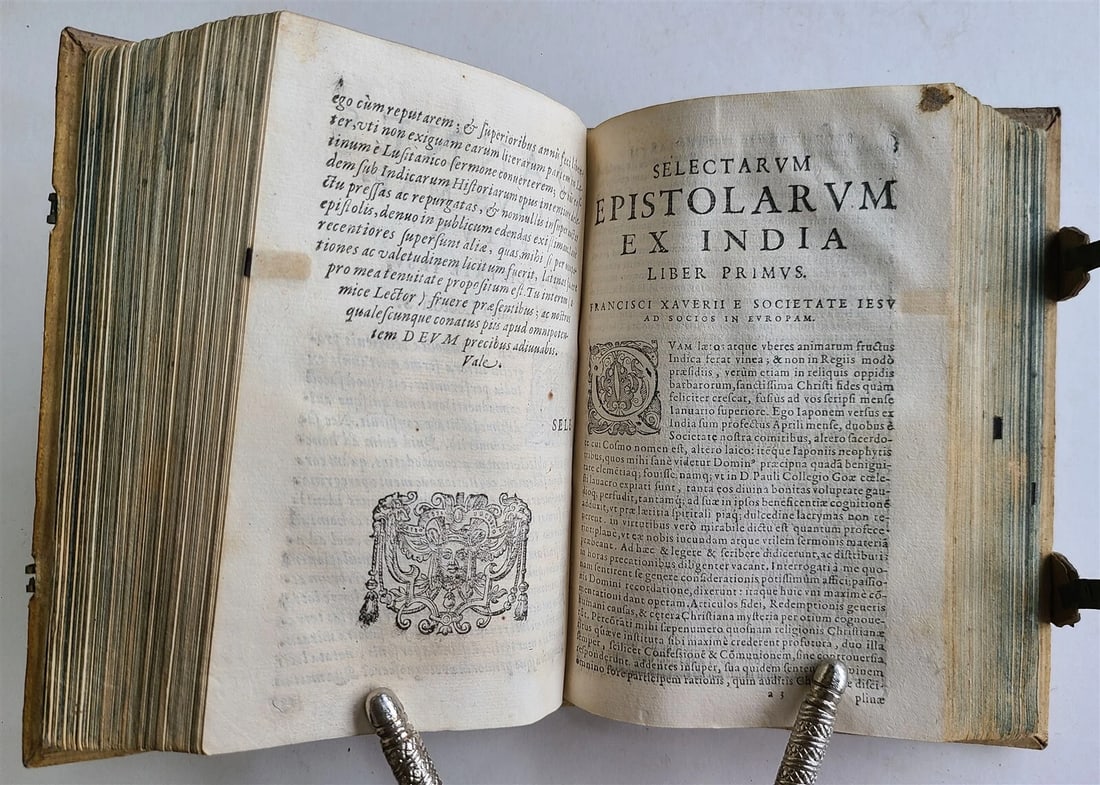 ego cùm reputarem; & superioribus annis
ter, vti non exiguam earum literarum partem in La-
tinum è Lusitanico sermone conuerterem; &
dem sub Indicarum Historiarum opus
ctu pressas ac repurgatas, & nonnullis insuper
epistolis, denuo in publicum edendas existimaui
recentiores supersunt aliæ, quas mihi si per
tiones ac valetudinem licitum fuerit, latinas
pro mea tenuitate propositum est. Tu interim
mice Lector) fruere præsentibus; ac nostros
qualescunque conatus piis apud omnipoten-
tem DEVM precibus adiuuabis.
Vale.
SELE
SELECTARVM
EPISTOLARVM
EX INDIA
LIBER PRIMVS.
FRANCISCI XAVERII E SOCIETATE IESV
AD SOCIOS IN EVROPAM.
QVAM læto; atque vberes animarum fructus
Indica ferat vinea; & non in Regiis modò
præsidiis, verùm etiam in reliquis oppidis
barbarorum, sanctissima Christi fides quàm
feliciter crescat, fusius ad vos scripsi mense
Ianuario superiore. Ego Iaponem versus ex
India sum profectus Aprili mense, duobus è
Societate nostra comitibus, altero sacerdo-
te cui Cosmo nomen est, altero laico: itéque Iaponiis neophytis
tribus, quos mihi sanè videtur Dominº præcipua quadã benigni-
tate clemẽtiaq; fouisse: namq; vt in D. Pauli Collegio Goæ cœle-
sti lauacro expiati sunt, tanta eos diuina bonitas voluptate gau-
dioq; perfudit, tantamq; ad suæ in ipsos beneficentiæ cognitionẽ
adduxit, vt præ lætitia spiritali piaq; dulcedine lacrymas non te-
nerent. In virtutibus verò mirabile dictu est quantum profece-
rint: planè, vt ea nobis iucundam atque vtilem sermonis materiã
præbeant. Ad hæc & legere & scribere didicerunt, ac distributis
in horas precationibus diligenter vacant. Interrogati à me quo-
nam sentirent se genere considerationis potissimum affici: passio-
nis Domini recordatione, dixerunt: itaque huic vni maximè cõ-
mentationi dant operam. Articulos fidei, Redemptionis generis
humani causas, & cetera Christiana mysteria per otium cognoue-
re. Percõtati à me sæpenumero quosnam religionis Christianæ
ritus quæve instituta sibi maximè crederent profutura, duo illa
semper, scilicet Confessionẽ & Cõmunionem, sine controuersia
responderunt, addentes insuper, sua quidem
omnino fore participem rationis, quin auditis disci-
a 3 plinæ